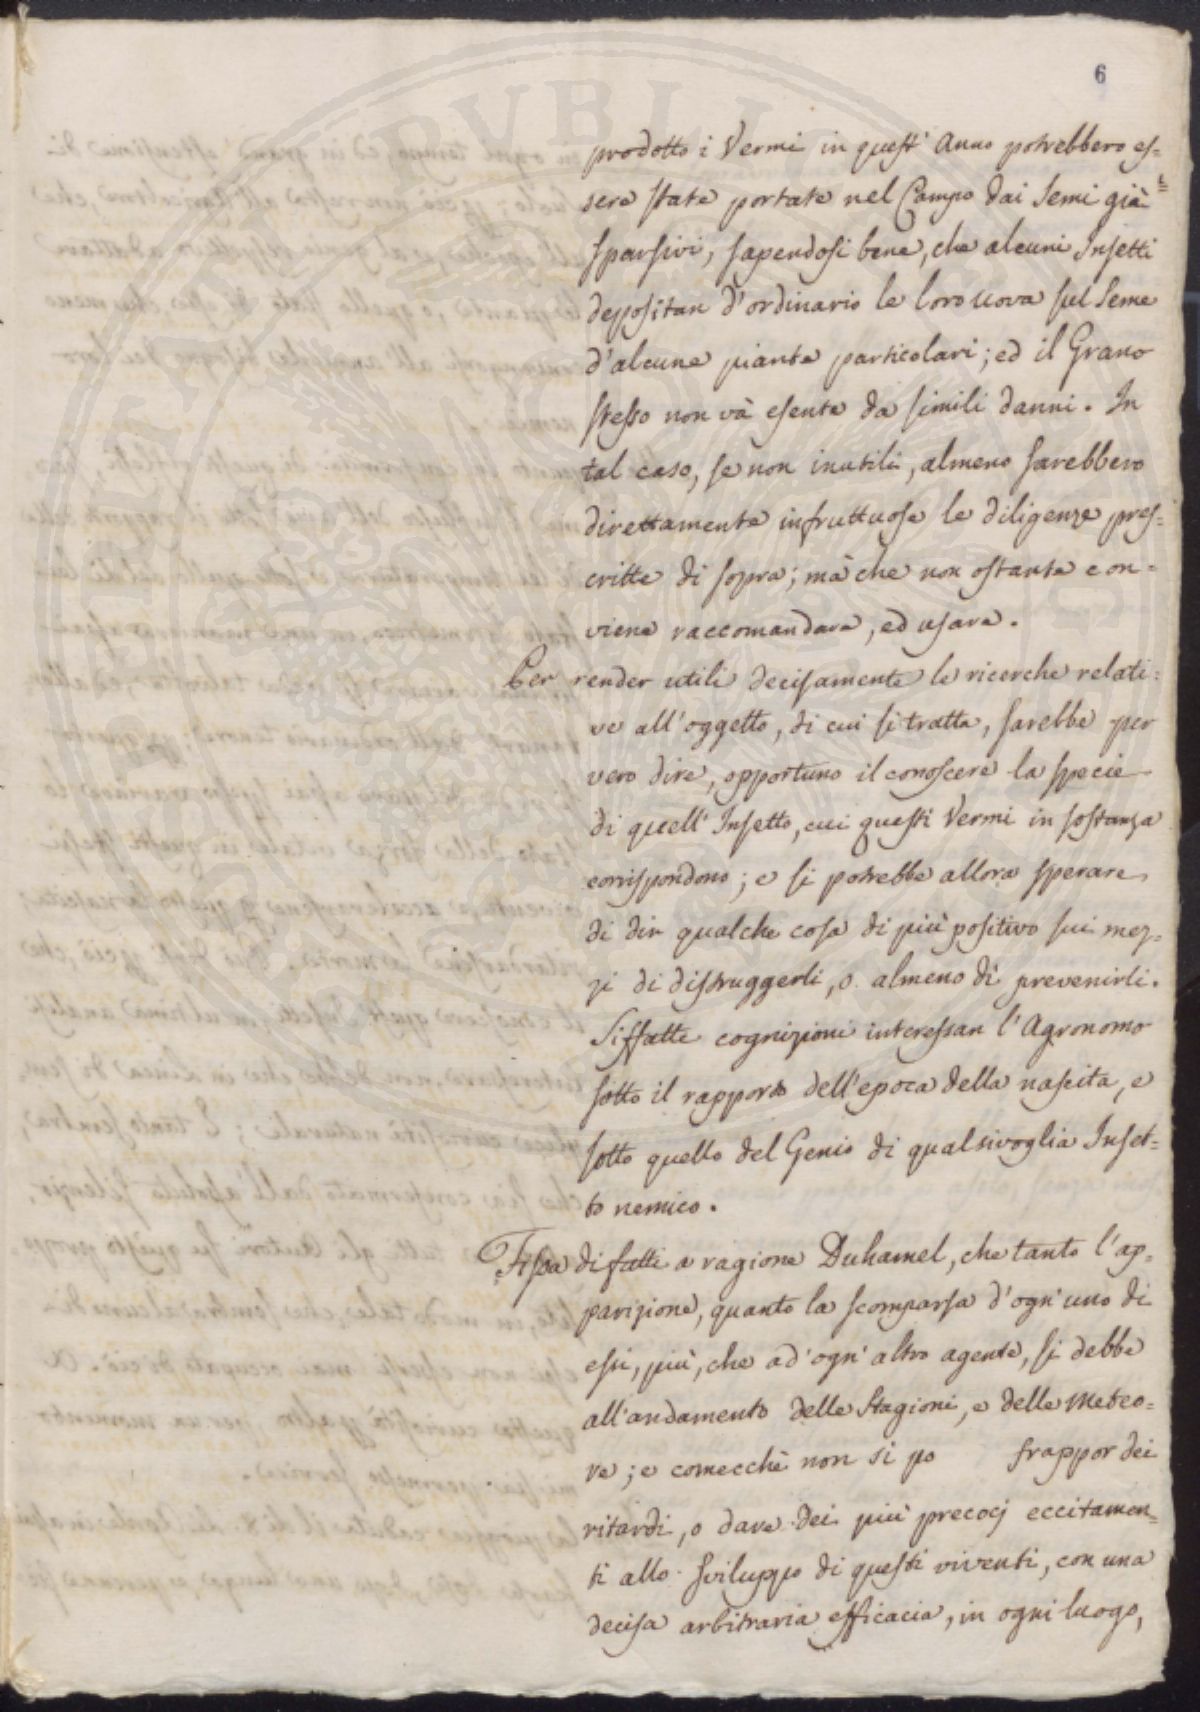 6
prodotto i Vermi in quest' Anno potrebbero es=
sere state portate nel Campo dai Semi già
sparsivi, sapendosi bene, che alcuni Insetti
depositan d'ordinario le loro uova sul Seme
d'alcune piante particolari; ed il Grano
stesso non và esente da simili danni. In
tal caso, se non inutili, almeno sarebbero
direttamente infruttuose le diligenze pres=
critte di sopra; mà che non ostante con=
viene raccomandare, ed usare.
Per render utili decisamente le ricerche relati=
ve all'oggetto, di cui si tratta, sarebbe per
vero dire, opportuno il conoscere la specie
di quell'Insetto, cui questi Vermi in sostanza
corrispondono; e si potrebbe allora sperare
di dir qualche cosa di più positivo sui mez=
zi di distruggerli, o almeno di prevenirli.
Siffatte cognizioni interessan l'Agronomo
sotto il rapporto dell'epoca della nascita, e
sotto quello del Genio di qualsivoglia Inset=
to nemico.
Fissa di fatti a ragione Duhamel, che tanto l'ap=
parizione, quanto la scomparsa d'ogn'uno di
essi, più, che ad'ogn'altro agente, si debbe
all'andamento delle Stagioni, e delle Meteo=
re; e comecchè non si po frappor dei
ritardi, o dare dei più precocj eccitamen=
ti allo sviluppo di questi viventi, con una
decisa arbitraria efficacia, in ogni luogo,